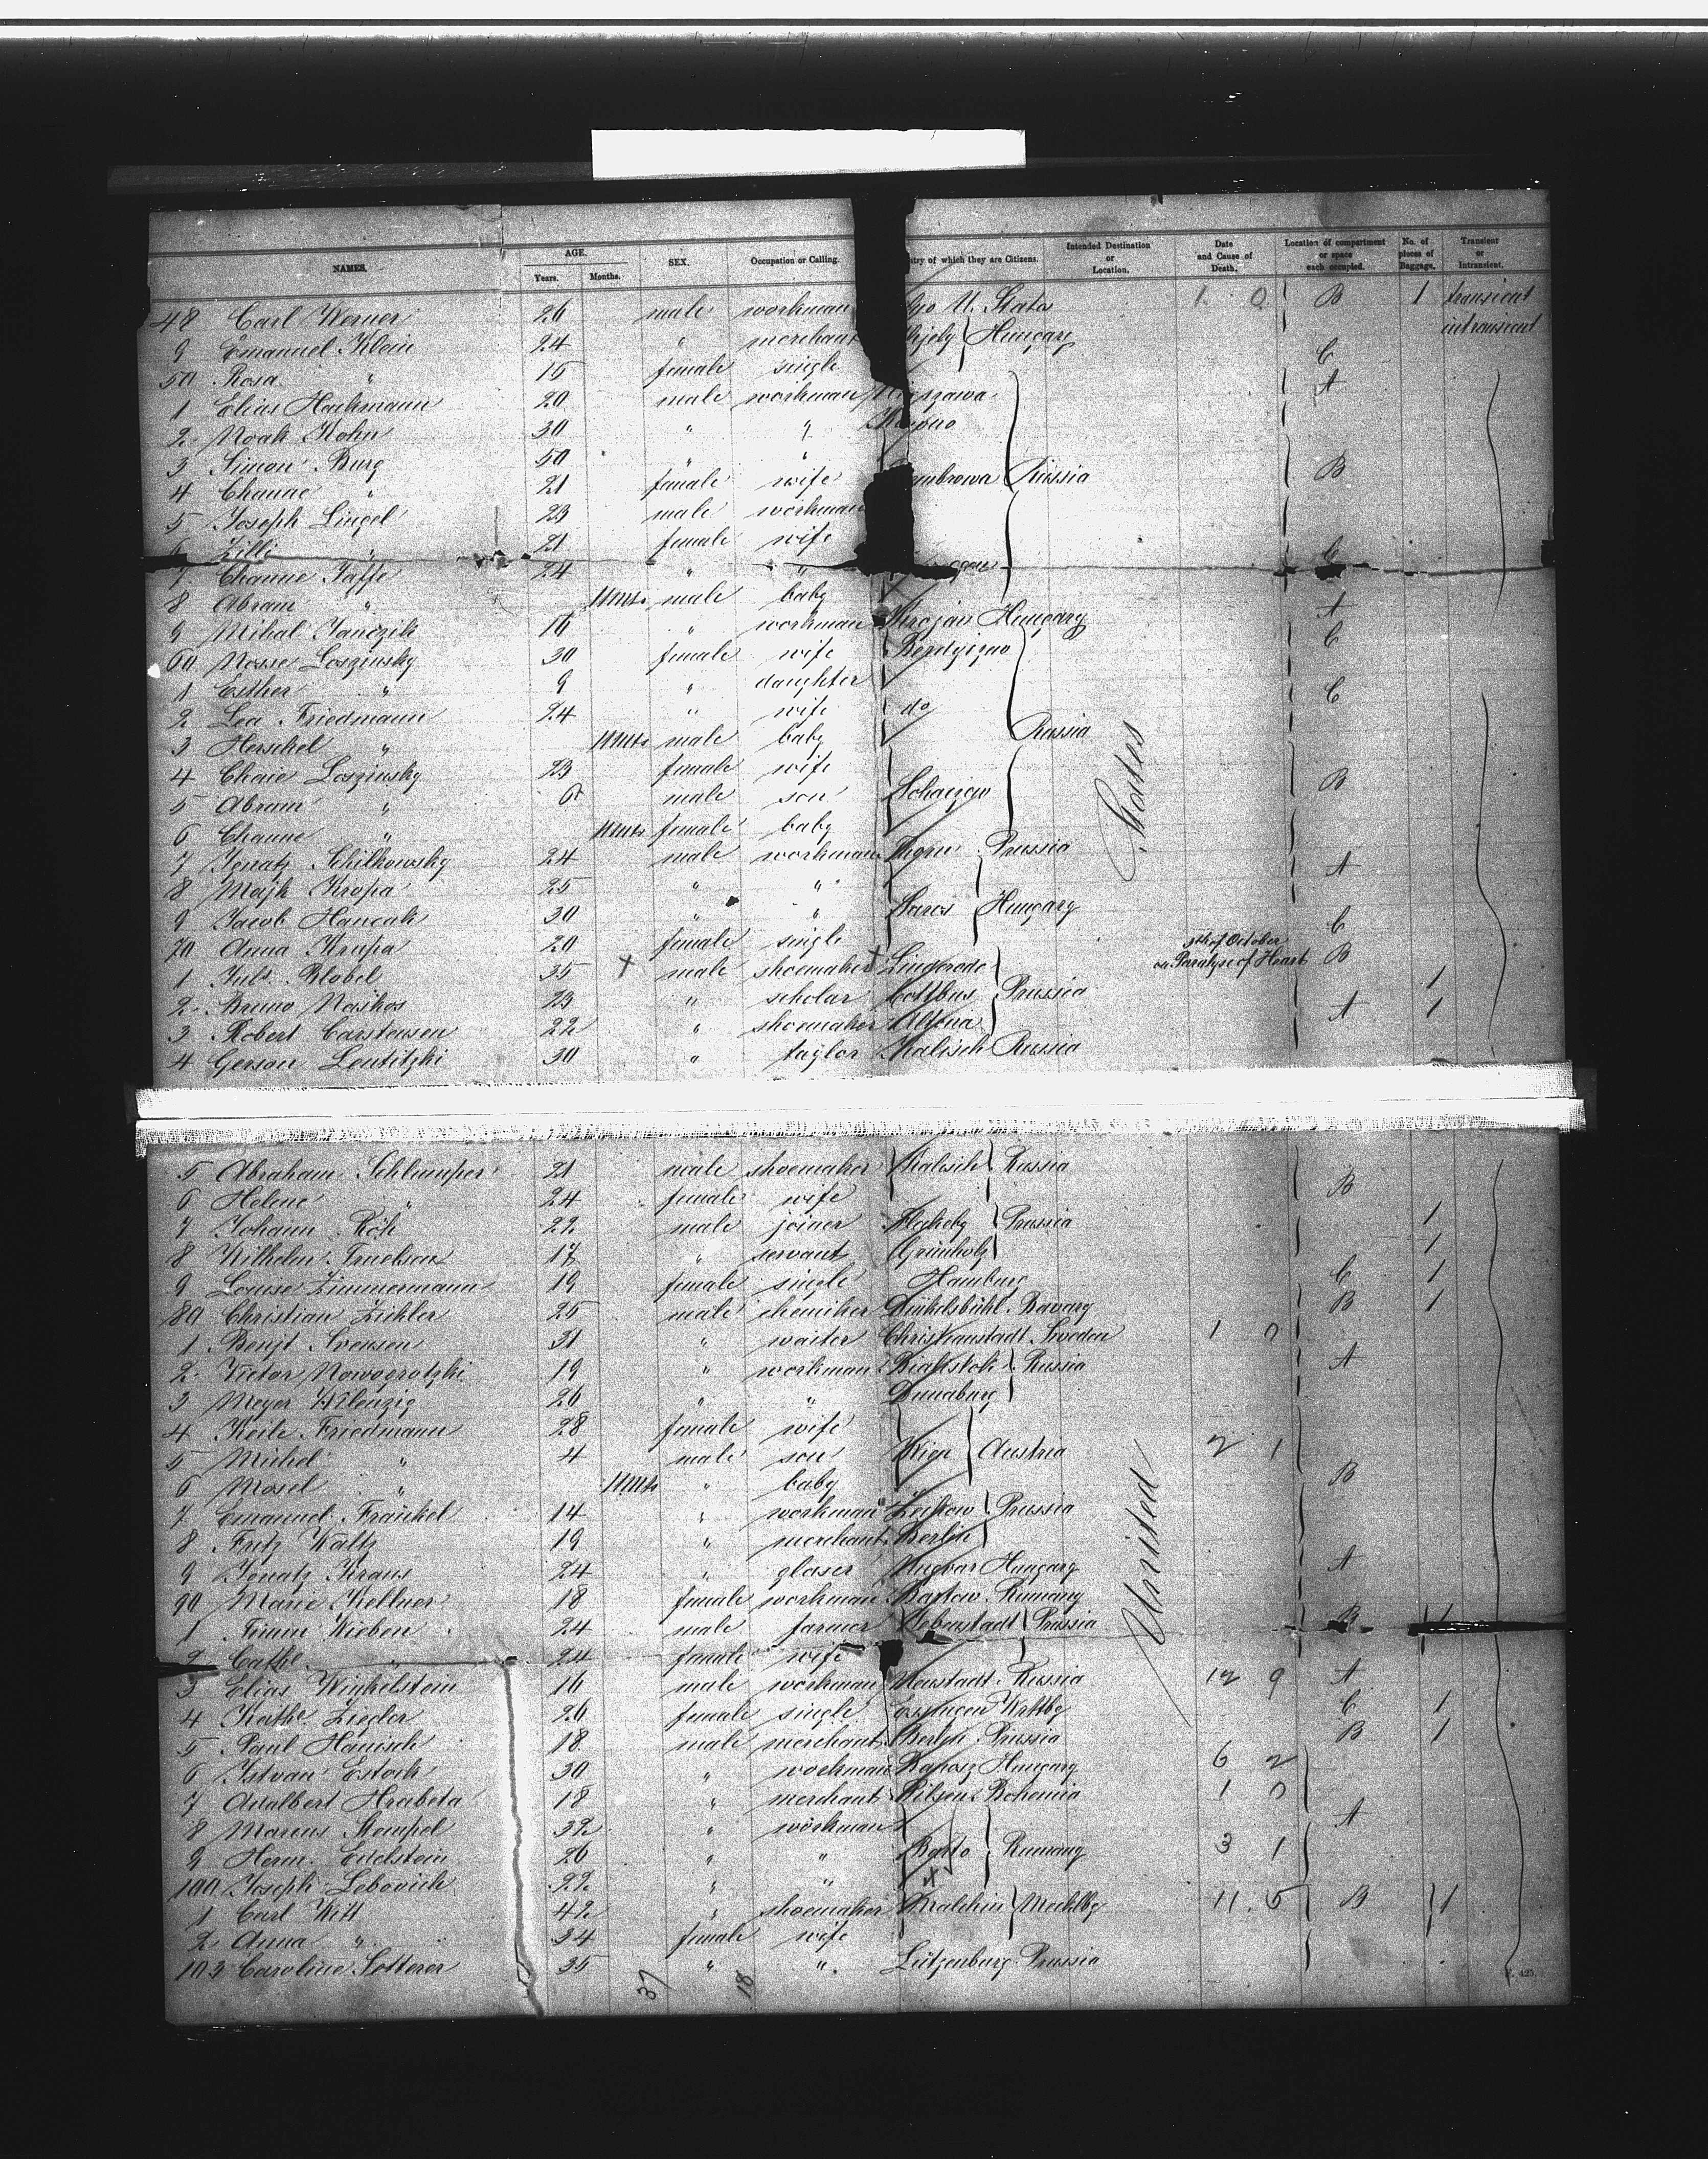 NAMES. AGE. Years. Months. SEX. Occupation or Calling. ntry of which they are Citizens. Intended Destination or Location. Date and Cause of Death. Location of compartment or space each occupied. No. of pieces of Baggage. Transient or Intransient.
48 Carl Werner 26 male workman U. States 1 0 B 1 transient
9 Emanuel Klein 24 " merchant Hungary intransient
50 Rosa " 15 female single C
1 Elias Hackmann 20 male workman A
2 Noah Kohn 30 " "
3 Simon Burg 50 " "
4 Channe " 21 female wife ambrowa Russia B
5 Joseph Lingel 23 male workman
6 Zilli " 21 female wife
7 Channe Jaffe 24 " " C
8 Abram " 11 Mts. male baby
9 Mihal Janczik 16 " workman Hungary A
60 Mosse Loszinsky 30 female wife C
1 Esther " 9 " daughter
2 Lea Friedmann 24 " wife do C
3 Herschel " 11 Mts male baby Russia
4 Chaie Loszinsky 23 female wife
5 Abram " 6 male son B
6 Channe " 11 Mts female baby
7 Ignatz Schilkowsky 24 male workman Prussia
8 Majk Kropa 25 " " A
9 Jacob Hancak 30 " " Saros Hungary
70 Anna Krupa 20 female single C
1 Juls. Blobel 35 + male shoemaker + Lingerode 9th of October on Paralyse of Heart B
2 Bruno Naikos 23 " scholar Cottbus Prussia 1
3 Robert Carstensen 22 " shoemaker Altona A 1
4 Gerson Lentitzki 30 " taylor Kalisch Russia
States
5 Abraham Schlumper 21 male shoemaker Kalisch Russia
6 Helene " 24 female wife B
7 Johann Röh 22 male joiner Prussia 1
8 Wilhelm Truelsen 17 " servant Grünholz 1
9 Louise Zimmermann 19 female single Hamburg C 1
80 Christian Zickler 25 male chemiker Dinkelsbühl Bavary B 1
1 Bengt Svensen 31 " waiter Christianstadt Sweden 1 0
2 Victor Nowogrotzki 19 " workman Bialistok Russia A
3 Meyer Wilenzig 26 " " Dunaburg
4 Keile Friedmann 28 female wife
5 Michel " 4 male son Wien Austria 2 1
6 Mosel " 11 Mts " baby B
7 Emanuel Fränkel 14 " workman Prussia
8 Fritz Waltz 19 " merchant Berlin
9 Ignatz Kraus 24 " glaser Ungvar Hungary A
90 Marie Kellner 18 female workman Rumany
1 Timm Wieben 24 male farmer Prussia B 1
2 Cathe. " 24 female wife
3 Elias Winkelstein 16 male workman Neustadt Russia 12 9 A
4 Kathe. Ziegler 26 female single Esslingen Wrttbg C 1
5 Paul Hänisch 18 male merchant Berlin Prussia B 1
6 Istvan Estock 30 " workman Hungary 6 2
7 Adalbert Hrabeta 18 " merchant Pilsen Bohemia 1 0
8 Marcus Stempel 32 " workman A
9 Herm. Edelstein 26 " " Rumany 3 1
100 Joseph Lebovich 22 " "
1 Carl Witt 42 " shoemaker Malchin Mecklbg 11. 5 B 1
2 Anna " 34 female wife
103 Caroline Setterer 35 " " Lützenburg Prussia
United
37 18